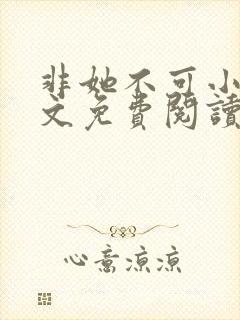 非她不可小
文免費閱讀
心意涼涼